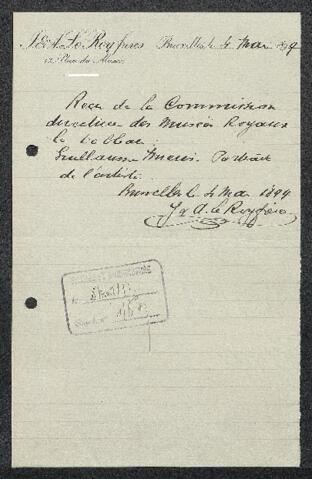 J. & A. Le Roy frères Bruxelles le 4 Mai 1899
12, Place du Musée
Reçu de la Commission
directrice des Musées Royaux
le tableau
Guillaume Portrait
de l'artiste.
Bruxelles le 4 Mai 1899
J & A. Le Roy frères